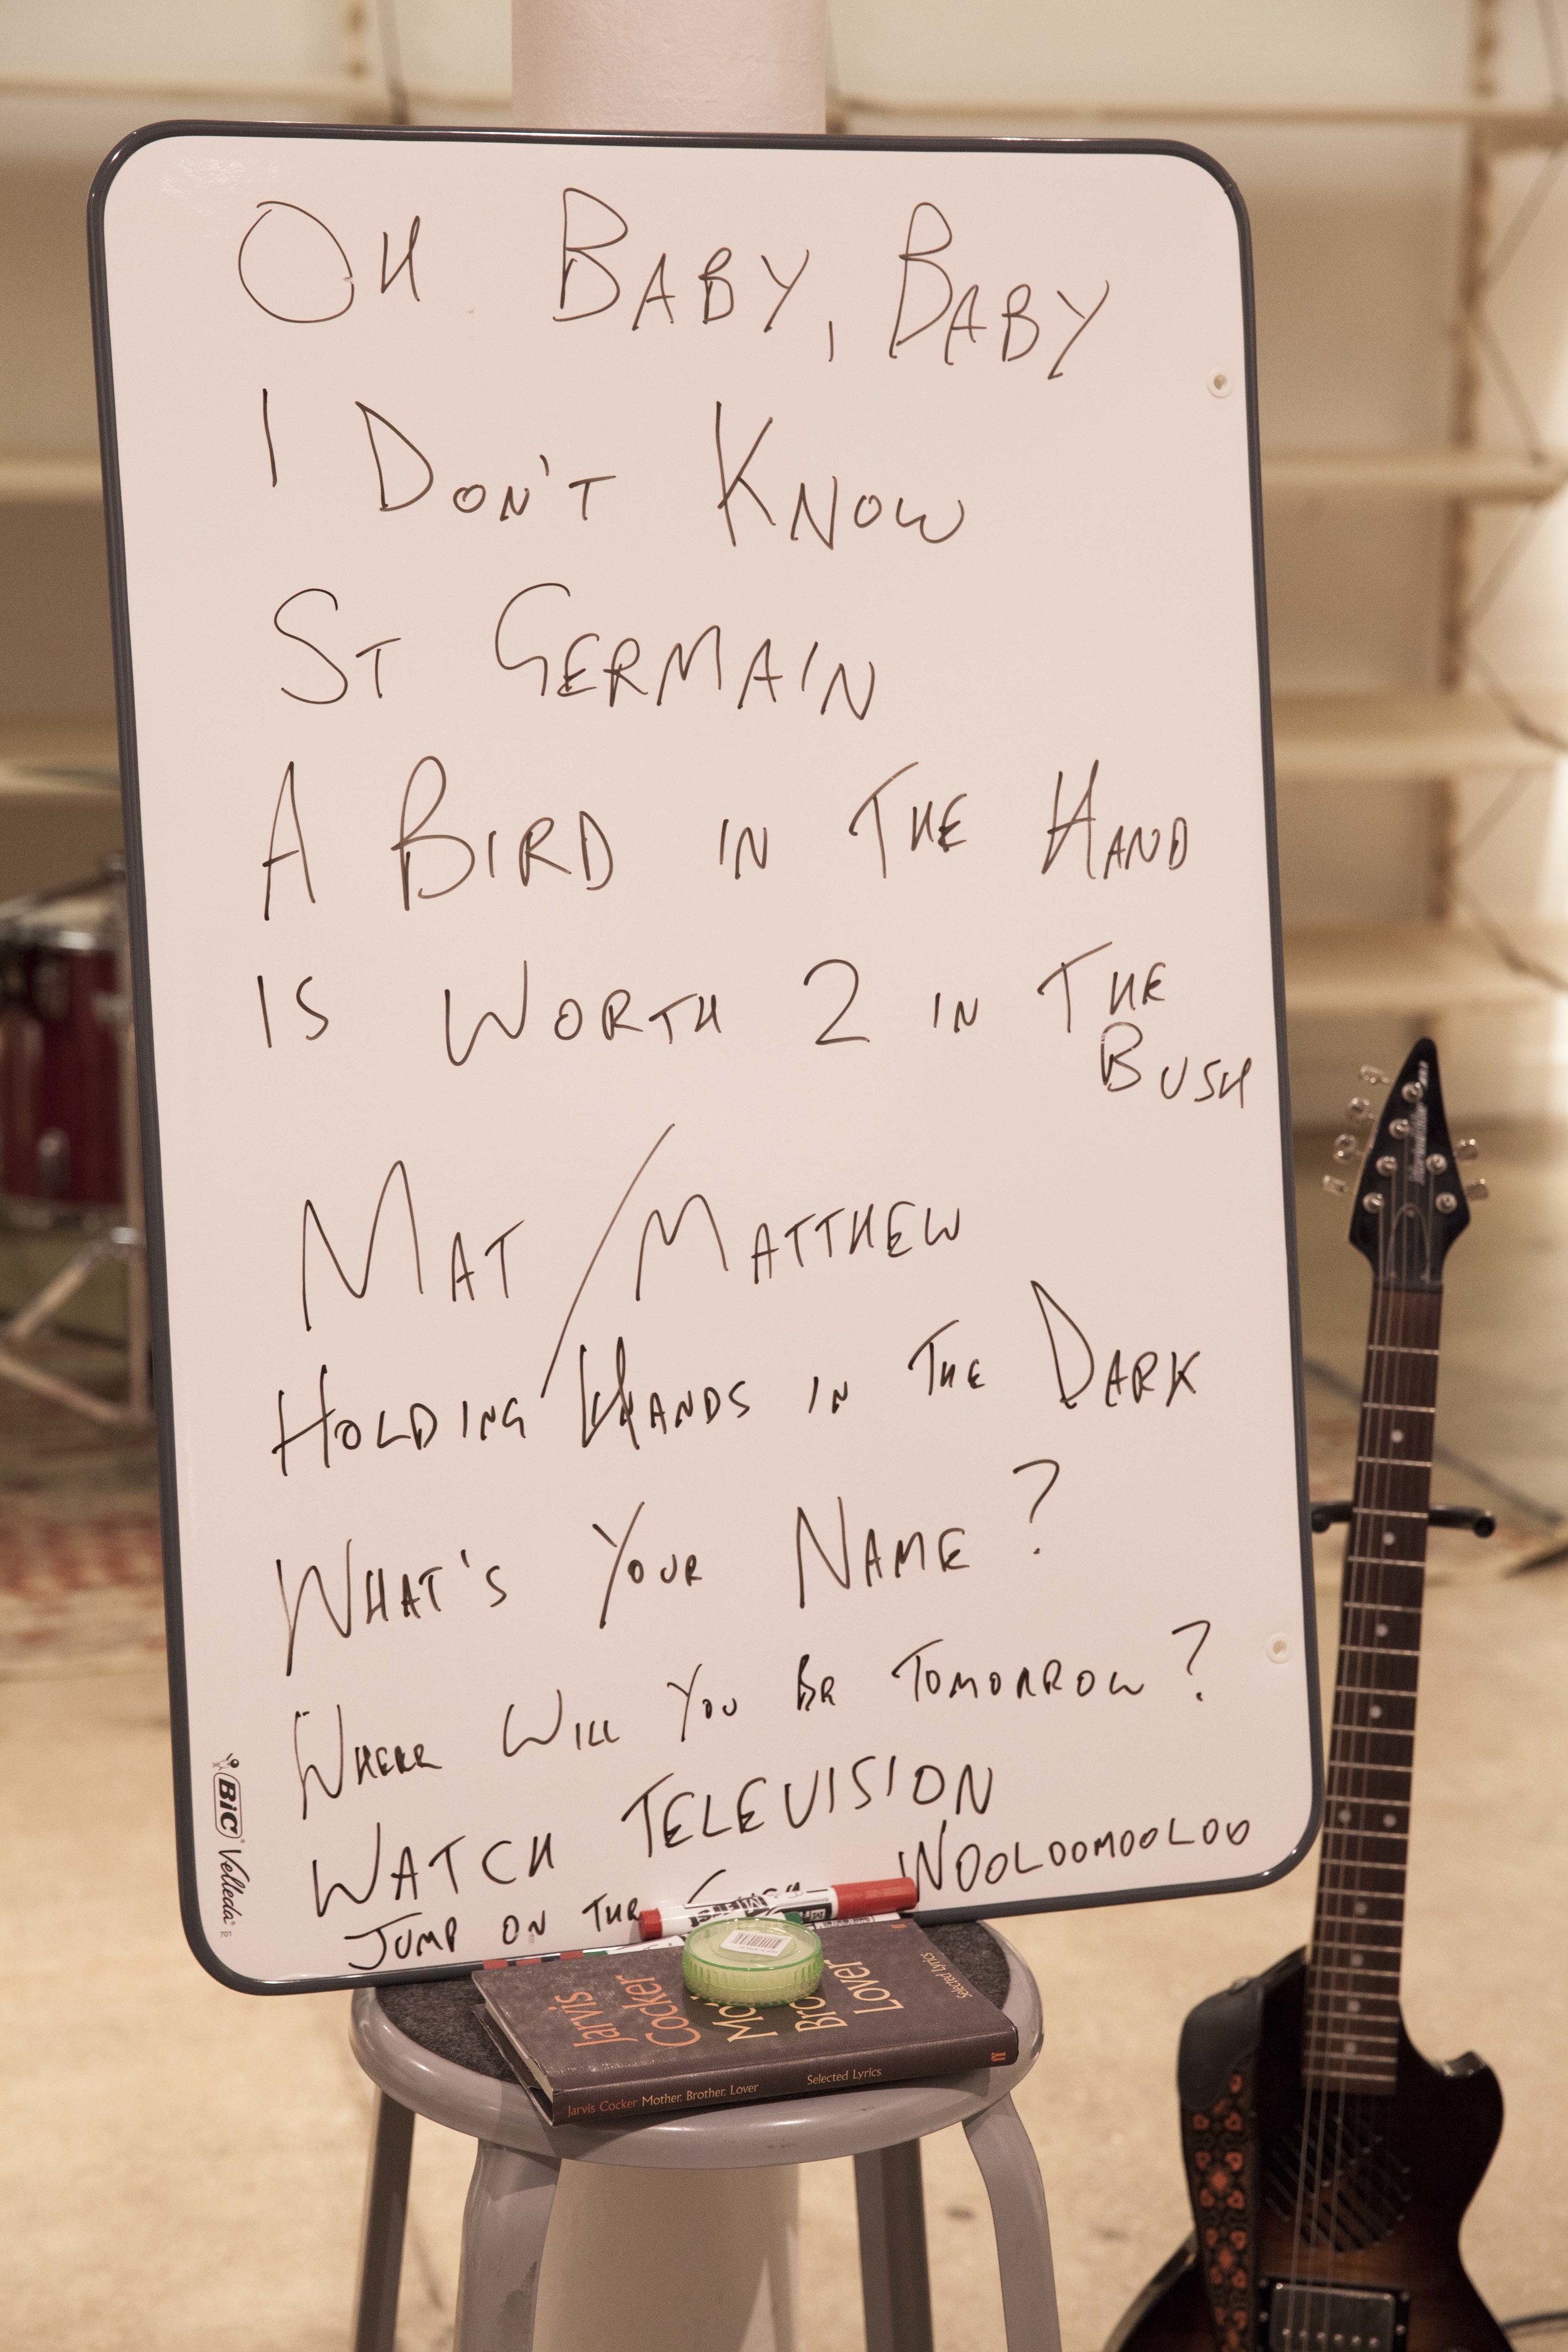 OH BABY, BABY
I DON'T KNOW
ST GERMAIN
A BIRD IN THE HAND
IS WORTH 2 IN THE
BUSH
MAT/MATTHEW
HOLDING HANDS IN THE DARK
WHAT'S YOUR NAME?
WHERE WILL YOU BE TOMORROW?
WATCH TELEVISION
WOOLOOMOOLOO
JUMP ON THE
BIC Velleda
Jarvis
Cocker
Lover
Selected Lyrics
Jarvis Cocker Mother, Brother, Lover Selected Lyrics